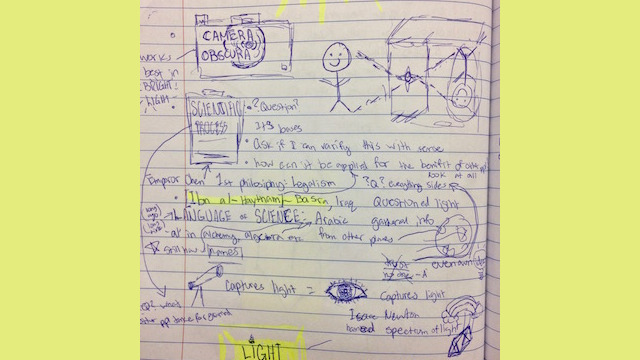 CAMERA
OBSCURA
works
best in
BRIGHT
LIGHT
SCIENTIFIC
PROCESS
? Question?
bases
ask if I can varify this with sense
how can it be applied for the benefit of
look at all
Emperor Chen 1st philosiphy: legalism
?Q? everything sides
Ibn al-Haytham - Basra, Iraq Questioned light
LANGUAGE OF SCIENCE: Arabic gathered info
al in alchemy, algebra etc from other places
still have names
trust
no one
Captures light = Captures light
Isaac Newton
spectrum of light
LIGHT